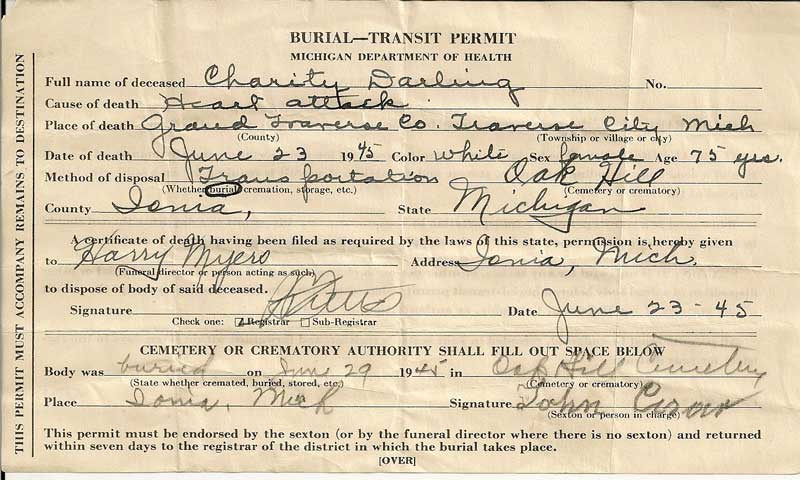 BURIAL—TRANSIT PERMIT
MICHIGAN DEPARTMENT OF HEALTH
Full name of deceased Charity Darling No.
Cause of death Heart attack
Place of death Grand Traverse Co. Traverse City Mich
(County) (Township or village or city)
Date of death June 23 1945 Color White Sex female Age 75 yrs.
Method of disposal Transportation Oak Hill
(Whether burial, cremation, storage, etc.) (Cemetery or crematory)
County Ionia, State Michigan
A certificate of death having been filed as required by the laws of this state, permission is hereby given
to Harry Myers Address Ionia, Mich.
(Funeral director or person acting as such)
to dispose of body of said deceased.
Signature Date June 23-45
Check one: Registrar Sub-Registrar
CEMETERY OR CREMATORY AUTHORITY SHALL FILL OUT SPACE BELOW
Body was buried on June 29 1945 in Oak Hill Cemetery
(State whether cremated, buried, stored, etc.) (Cemetery or crematory)
Place Ionia, Mich Signature John
(Sexton or person in charge)
This permit must be endorsed by the sexton (or by the funeral director where there is no sexton) and returned
within seven days to the registrar of the district in which the burial takes place.
[OVER]
THIS PERMIT MUST ACCOMPANY REMAINS TO DESTINATION